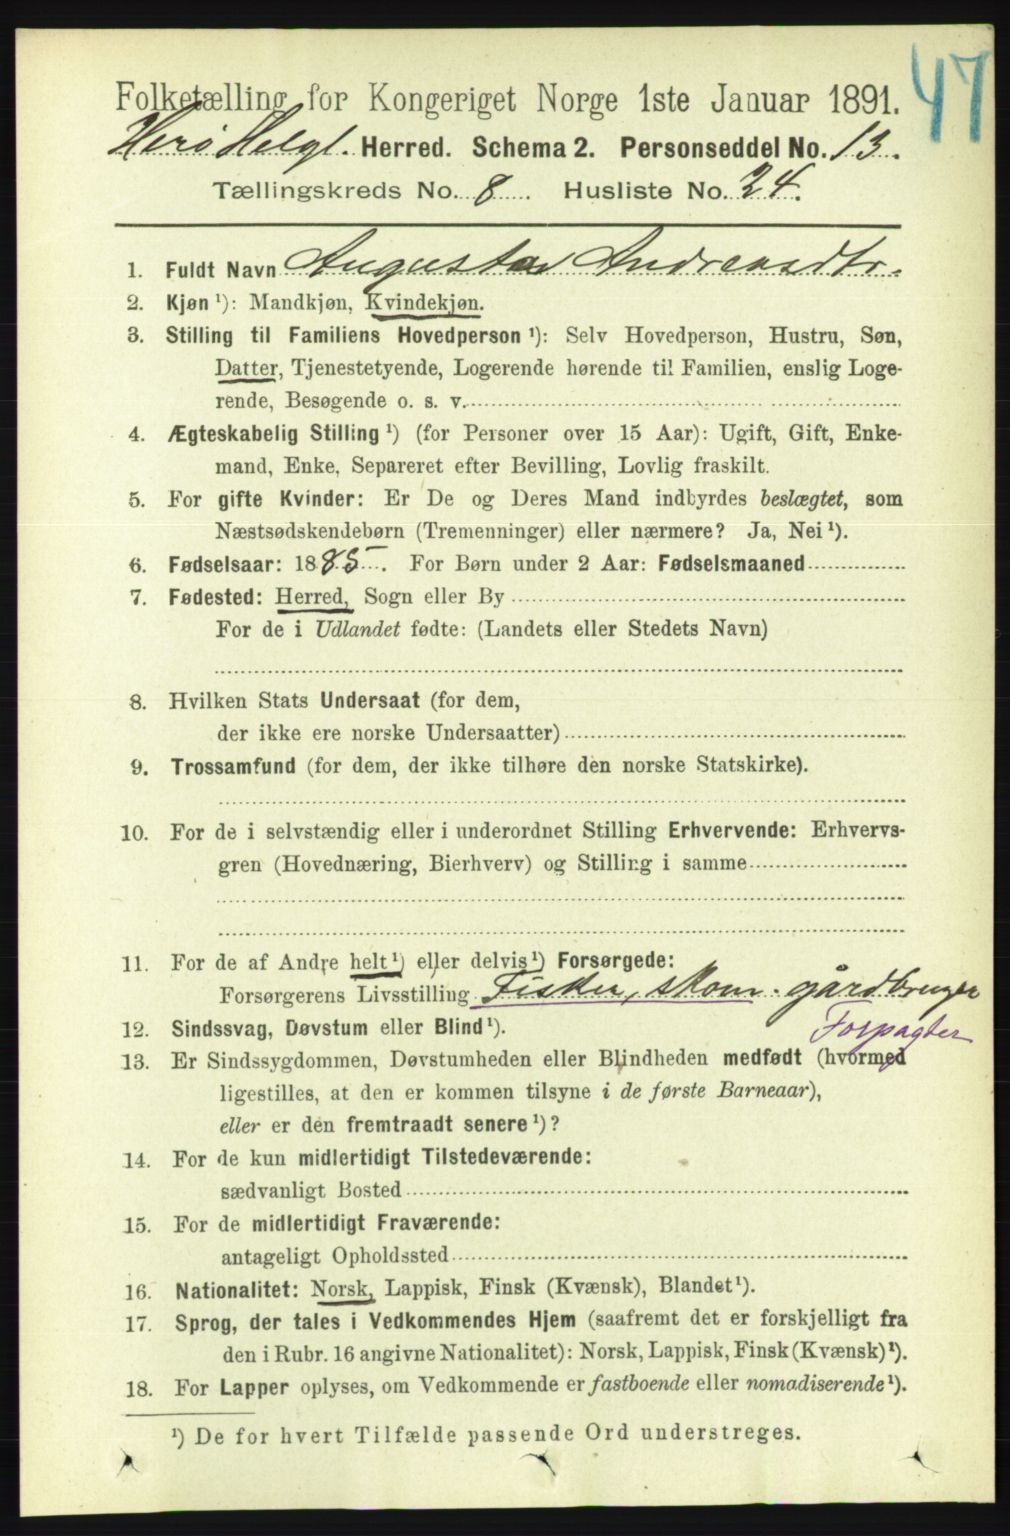 47
Folketælling for Kongeriget Norge 1ste Januar 1891.
Herø Helgl. Herred. Schema 2. Personseddel No. 13.
Tællingskreds No. 8. Husliste No. 24.
1. Fuldt Navn Augusta Andreasdtr.
2. Kjøn ¹): Mandkjøn, Kvindekjøn.
3. Stilling til Familiens Hovedperson ¹): Selv Hovedperson, Hustru, Søn,
Datter, Tjenestetyende, Logerende hørende til Familien, enslig Loge-
rende, Besøgende o. s. v.
4. Ægteskabelig Stilling ¹) (for Personer over 15 Aar): Ugift, Gift, Enke-
mand, Enke, Separeret efter Bevilling, Lovlig fraskilt.
5. For gifte Kvinder: Er De og Deres Mand indbyrdes beslægtet, som
Næstsødskendebørn (Tremenninger) eller nærmere? Ja, Nei ¹).
6. Fødselsaar: 1885. For Børn under 2 Aar: Fødselsmaaned
7. Fødested: Herred, Sogn eller By
For de i Udlandet fødte: (Landets eller Stedets Navn)
8. Hvilken Stats Undersaat (for dem,
der ikke ere norske Undersaatter)
9. Trossamfund (for dem, der ikke tilhøre den norske Statskirke).
10. For de i selvstændig eller i underordnet Stilling Erhvervende: Erhvervs-
gren (Hovednæring, Bierhverv) og Stilling i samme
11. For de af Andre helt ¹) eller delvis ¹) Forsørgede:
Forsørgerens Livsstilling Fisker, skom. gårdbruger
Forpagter
12. Sindssvag, Døvstum eller Blind ¹).
13. Er Sindssygdommen, Døvstumheden eller Blindheden medfødt (hvormed
ligestilles, at den er kommen tilsyne i de første Barneaar),
eller er den fremtraadt senere ¹)?
14. For de kun midlertidigt Tilstedeværende:
sædvanligt Bosted
15. For de midlertidigt Fraværende:
antageligt Opholdssted
16. Nationalitet: Norsk, Lappisk, Finsk (Kvænsk), Blandet ¹).
17. Sprog, der tales i Vedkommendes Hjem (saafremt det er forskjelligt fra
den i Rubr. 16 angivne Nationalitet): Norsk, Lappisk, Finsk (Kvænsk) ¹).
18. For Lapper oplyses, om Vedkommende er fastboende eller nomadiserende ¹).
¹) De for hvert Tilfælde passende Ord understreges.